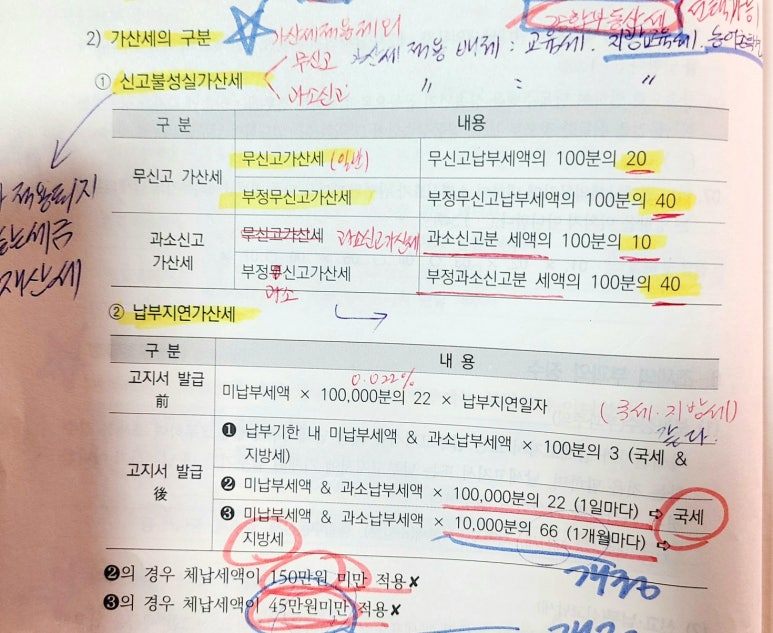 조합부동산세 선택가능
2) 가산세의 구분 가산세적용제외
무신고 가산세 적용 배제 : 교육세. 지방교육세. 농어촌특
① 신고불성실가산세 과소신고 〃 : 〃
구 분 내용
무신고 가산세
무신고가산세 (일반) 무신고납부세액의 100분의 20
부정무신고가산세 부정무신고납부세액의 100분의 40
적용되지
않는세금
재산세
과소신고
가산세
무신고가산세 과소신고가산세 과소신고분 세액의 100분의 10
부정무신고가산세 부정과소신고분 세액의 100분의 40
과소
② 납부지연가산세
구 분 내 용
고지서 발급
前
0.022%
미납부세액 × 100,000분의 22 × 납부지연일자
(국세. 지방세)
같다.
고지서 발급
後
❶ 납부기한 내 미납부세액 & 과소납부세액 × 100분의 3 (국세 &
지방세)
❷ 미납부세액 & 과소납부세액 × 100,000분의 22 (1일마다) ⇨ 국세
❸ 미납부세액 & 과소납부세액 × 10,000분의 66 (1개월마다) ⇨
지방세
❷의 경우 체납세액이 150만원 미만 적용✘
개정
❸의 경우 체납세액이 45만원미만 적용✘
개정